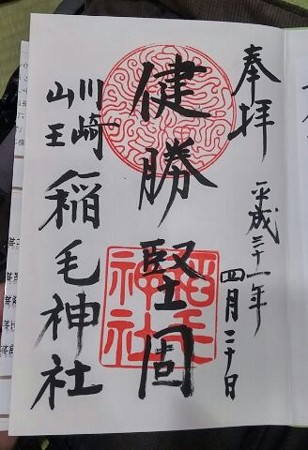 奉拝
平成三十一年
四月二十日
健勝堅固
川崎
山王
稲毛神社
稲毛
神社